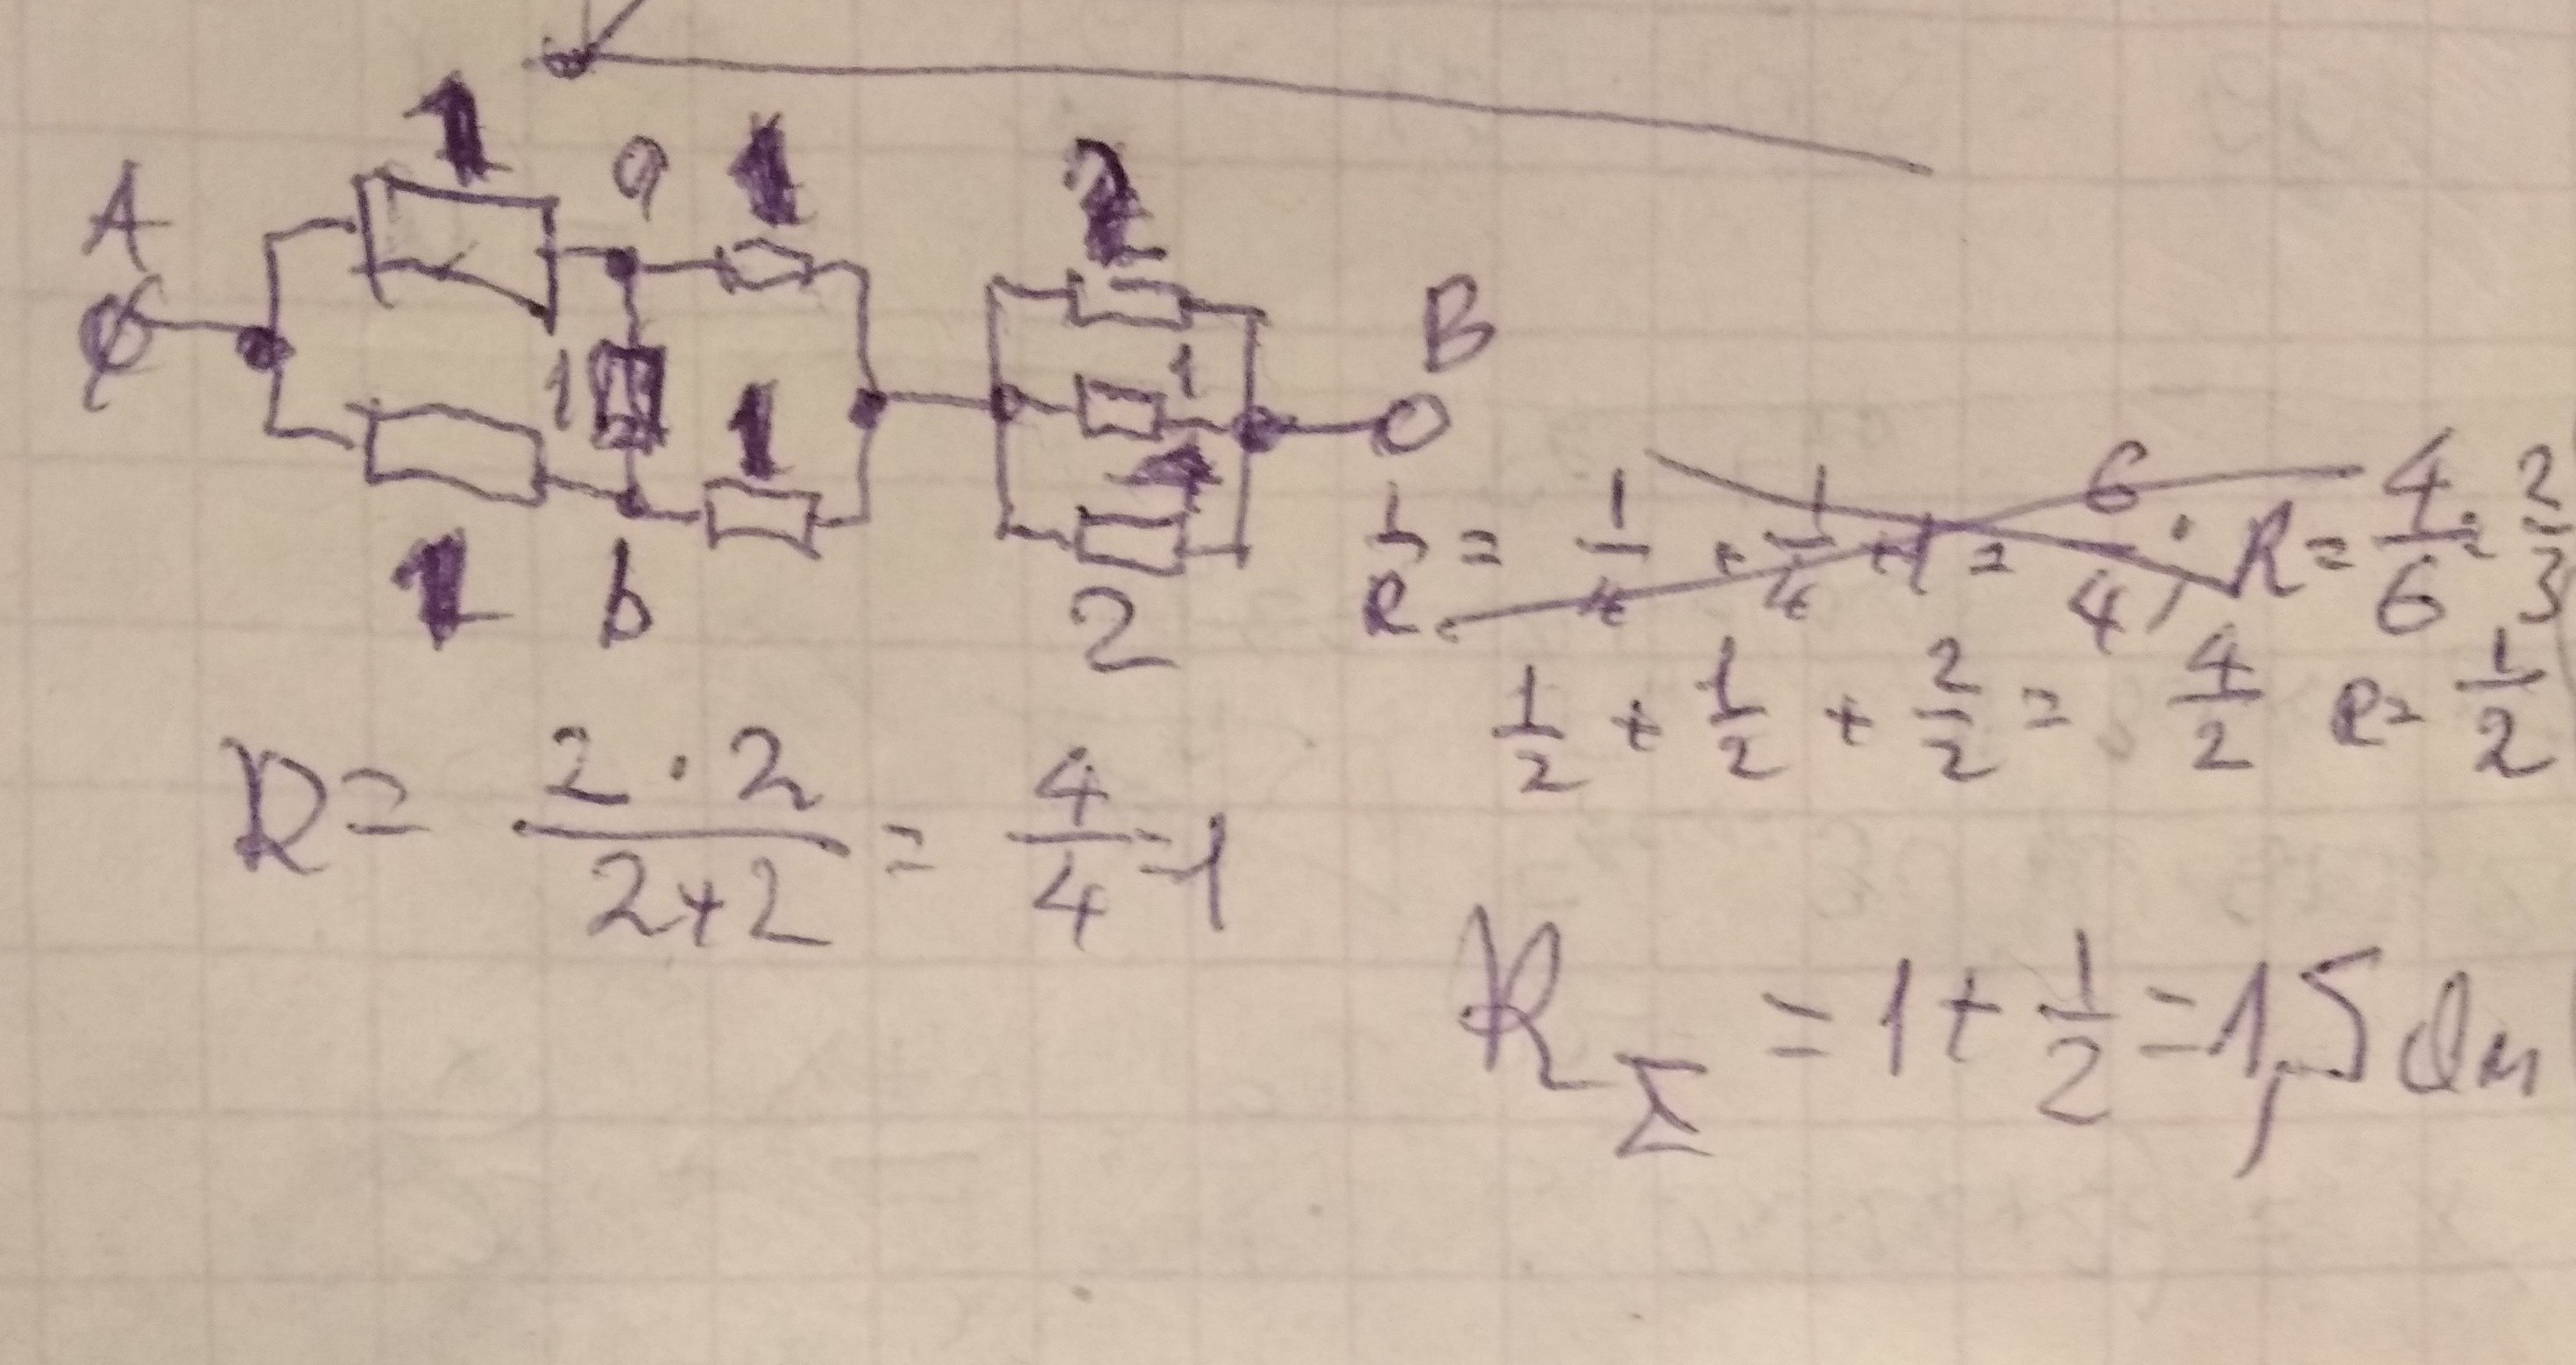 1 a 1 2
A
1 1 1 B
1 b 2
1/R = 1/4 + 1/4 + 1 = 6/4; R = 4/6 = 2/3
1/2 + 1/2 + 2/2 = 4/2 R = 1/2
R = 2·2/2+2 = 4/4 = 1
R Σ = 1 + 1/2 = 1,5 Ом